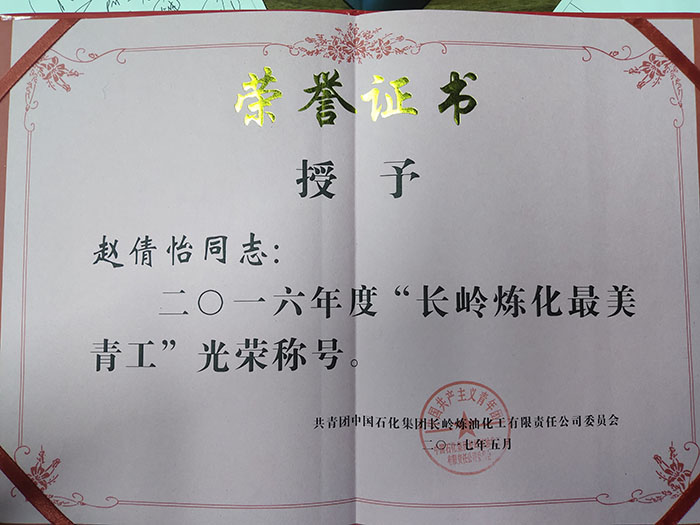 荣誉证书
授予
赵倩怡同志：
二〇一六年度“长岭炼化最美
青工”光荣称号。
共青团中国石化集团长岭炼油化工有限责任公司委员会
二〇一七年五月